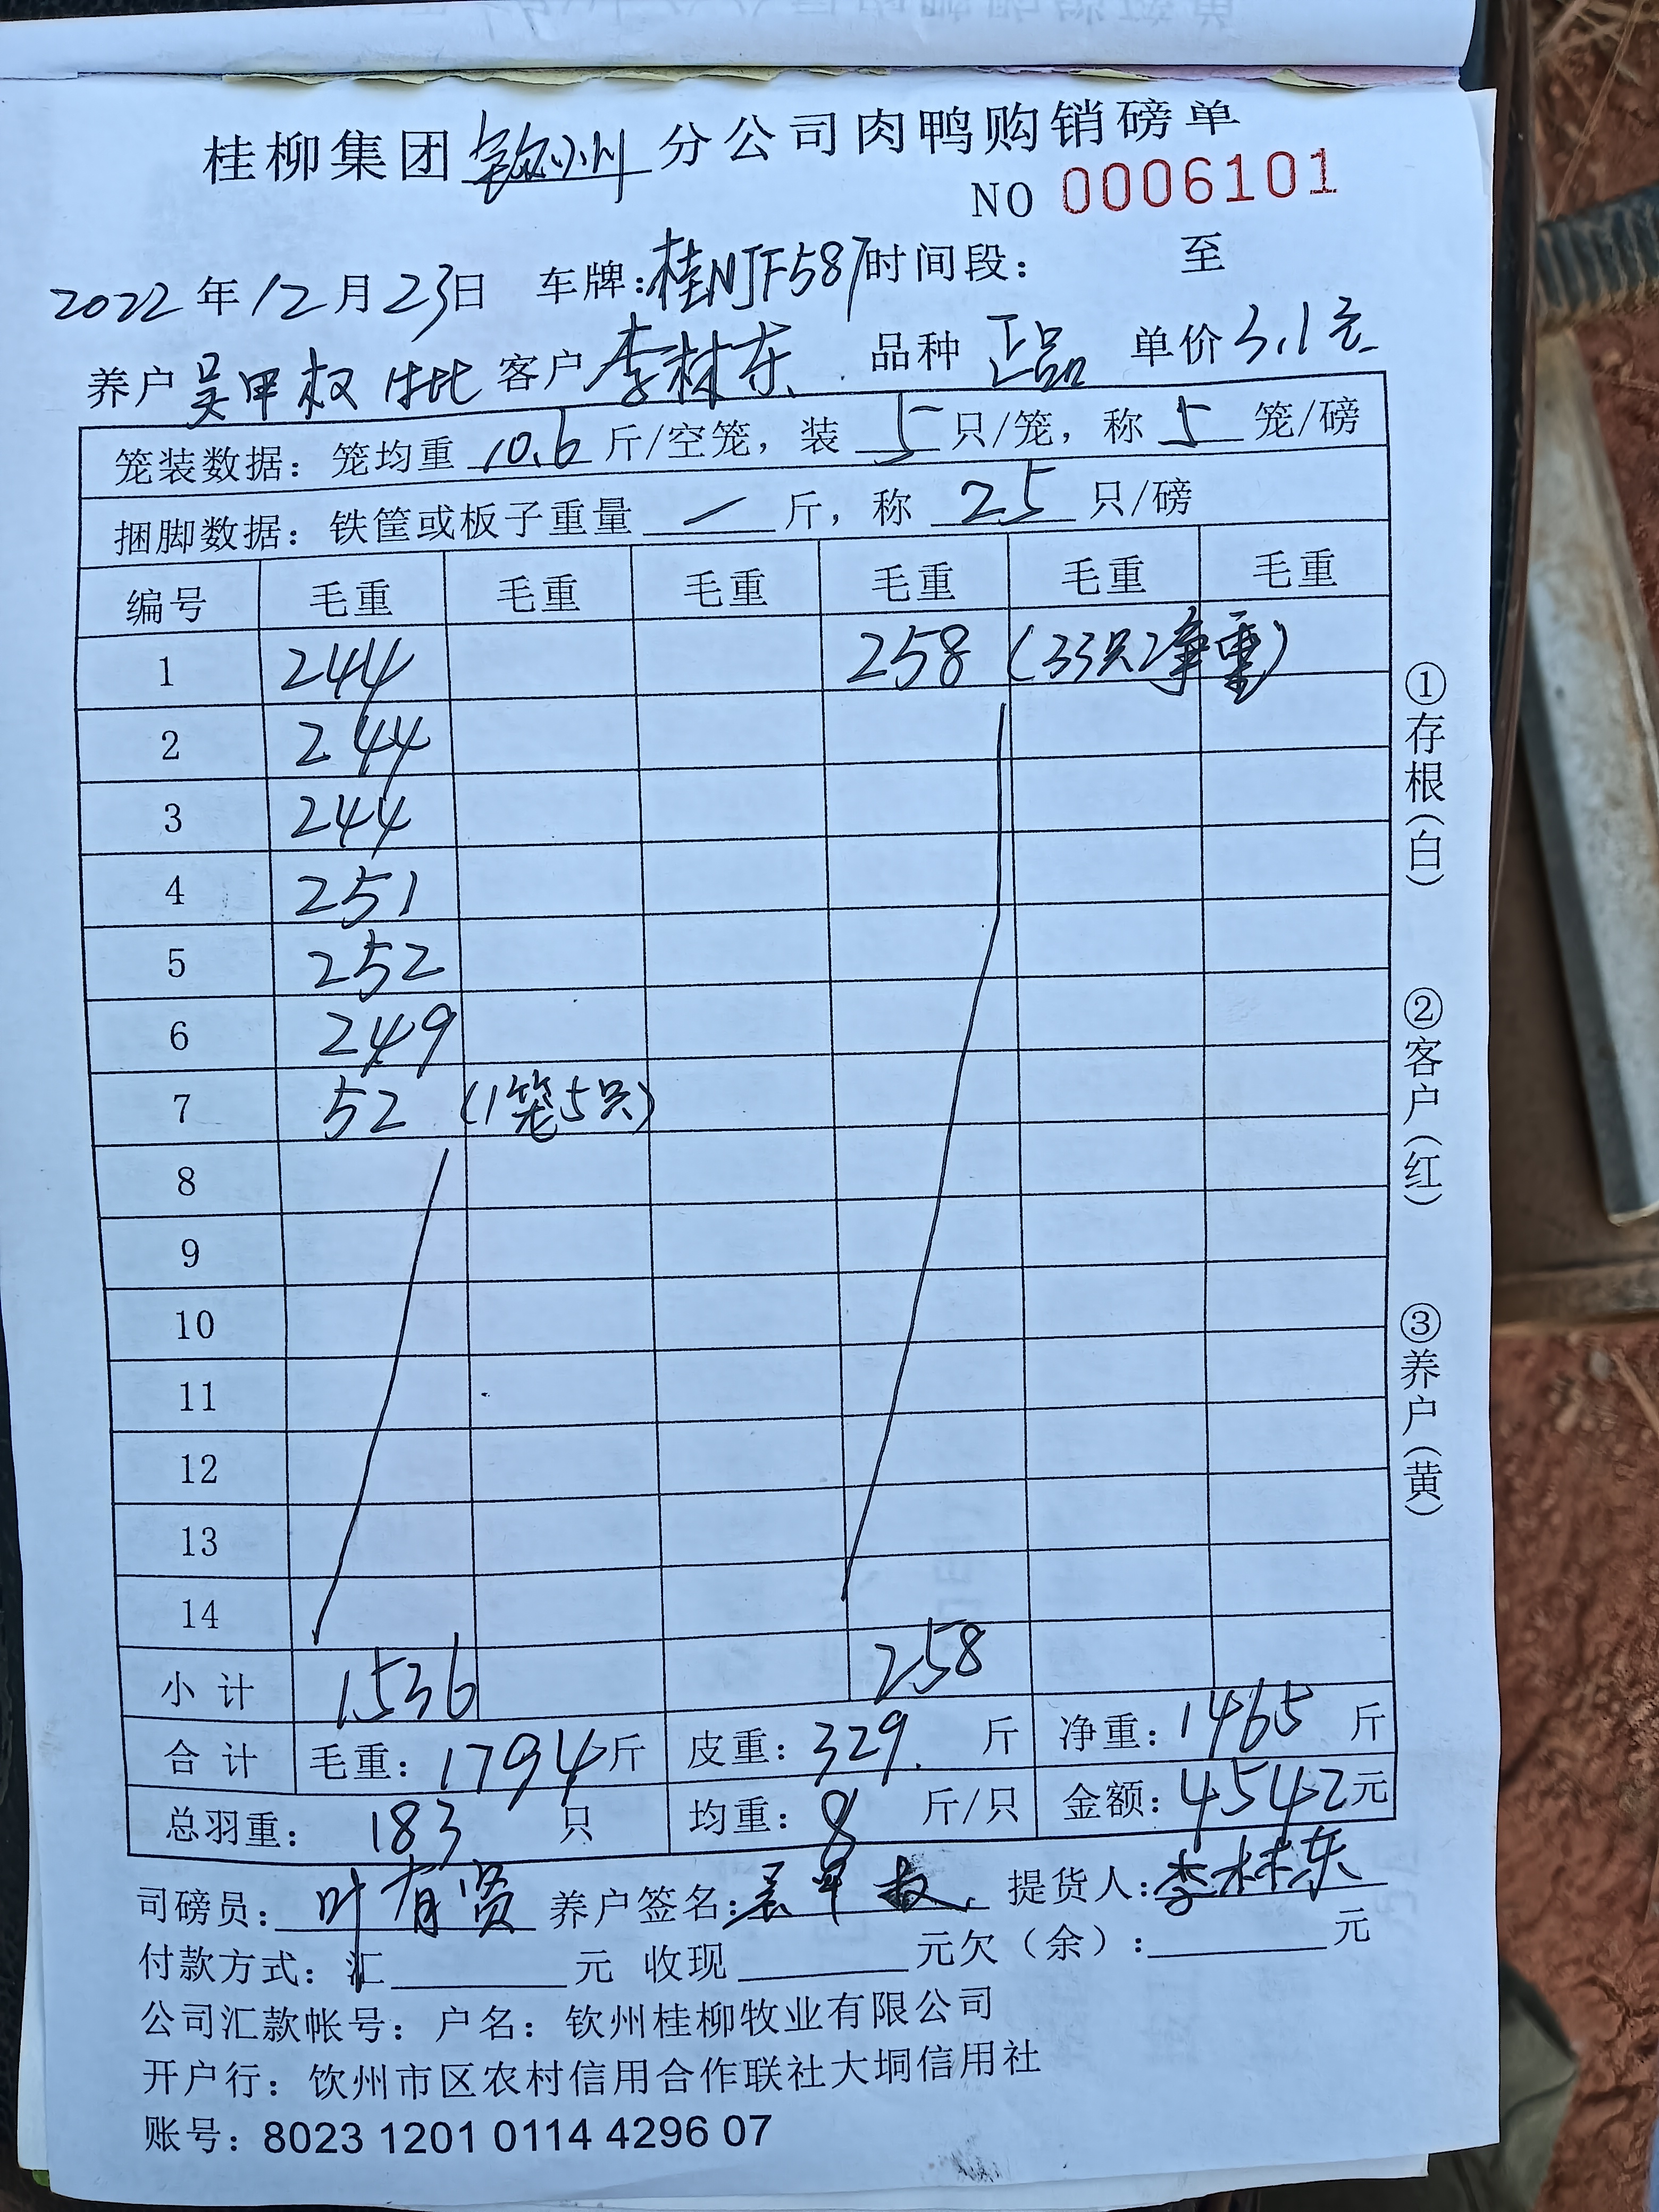 桂柳集团钦州分公司肉鸭购销磅单
NO 0006101
2022年12月23日 车牌:桂NJF587时间段: 至
养户 吴甲权 批 客户 李林东 品种 正品 单价 3.1元
笼装数据: 笼均重 10.6 斤/空笼, 装 5 只/笼, 称 5 笼/磅
捆脚数据: 铁筐或板子重量 — 斤, 称 25 只/磅
编号 毛重 毛重 毛重 毛重 毛重 毛重
1 244 258 (33只净重)
2 244
3 244
4 251
5 252
6 249
7 52 (1笼5只)
8
9
10
11
12
13
14
小计 1536 258
合计 毛重: 1794斤 皮重: 329. 斤 净重: 1465 斤
总羽重: 183 只 均重: 8 斤/只 金额: 4542元
司磅员: 叶有贤 养户签名: 吴甲权 提货人: 李林东
付款方式: 汇 元 收现 元欠(余): 元
公司汇款帐号: 户名: 钦州桂柳牧业有限公司
开户行: 钦州市区农村信用合作联社大垌信用社
账号: 8023 1201 0114 4296 07
①存根(白)
②客户(红)
③养户(黄)